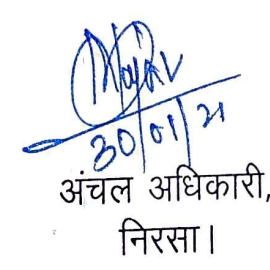 30/01/21
अंचल अधिकारी,
निरसा।